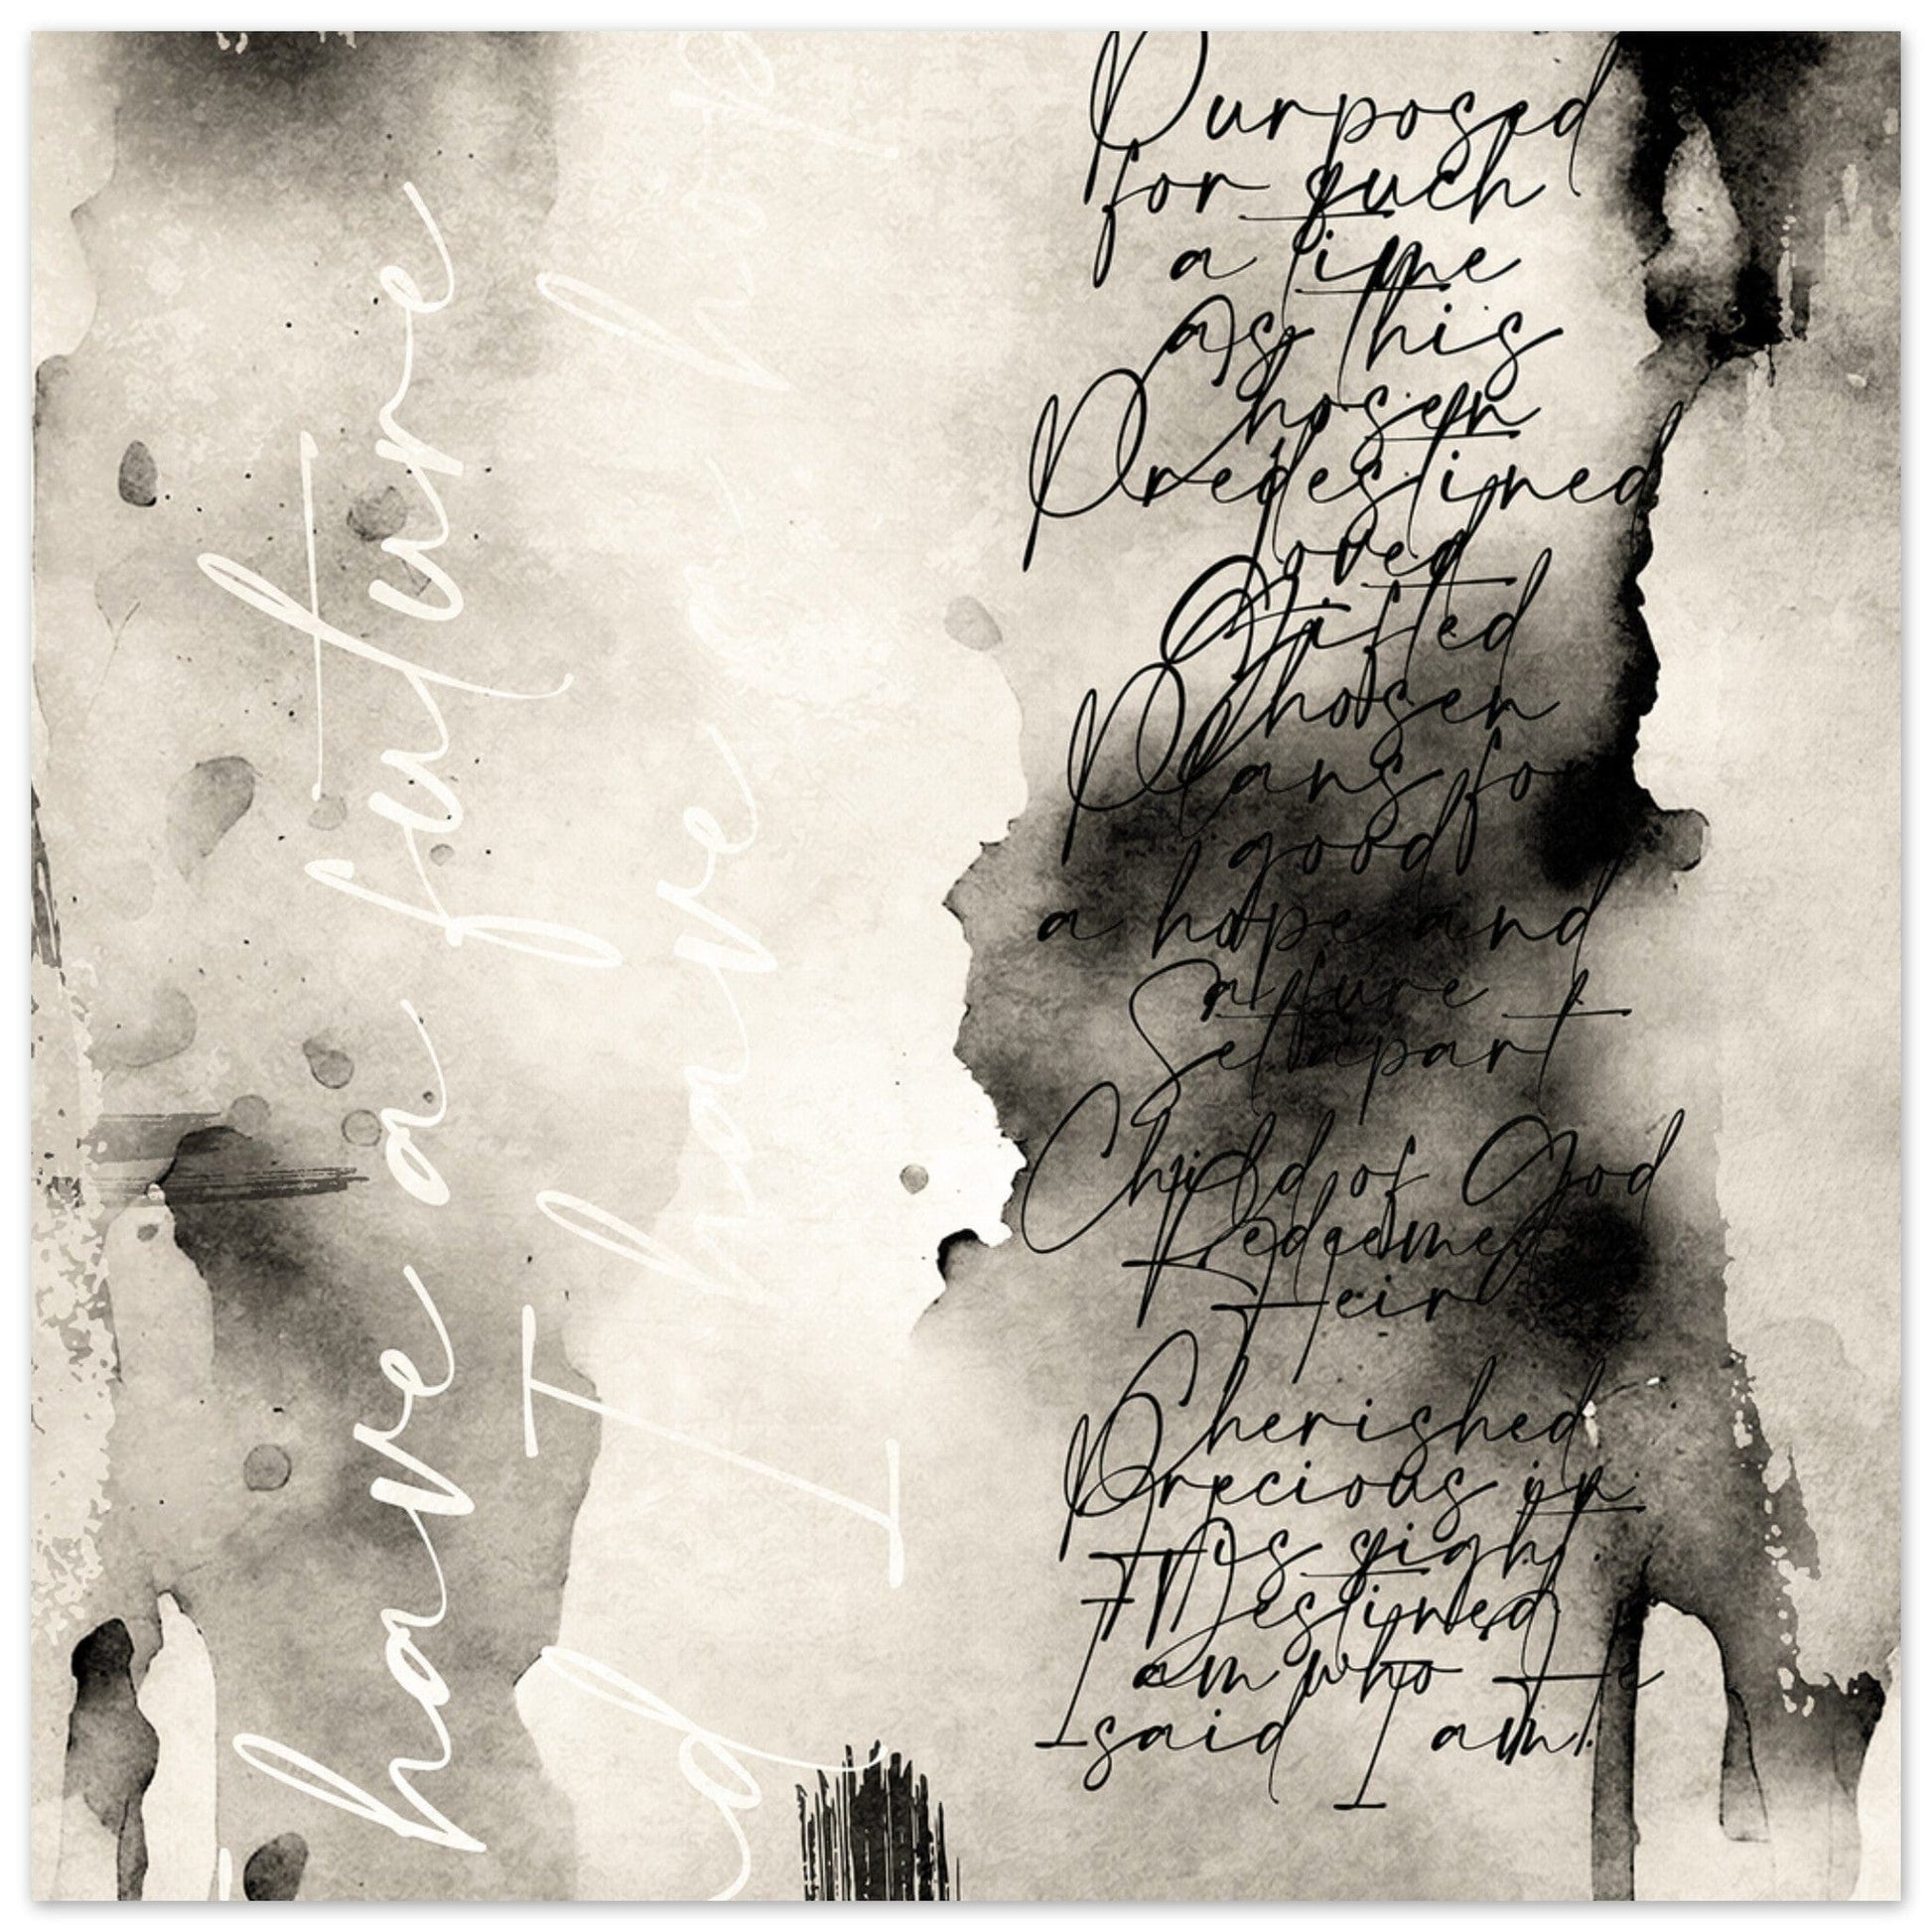 have a future
I have a hop
Purposed
for such
a time
As this
Chosen
Predestined
Loved
Gifted
Chosen
Plans for
good
a hope and
a future
Set apart
Child of God
Redeemed
Heir
Cherished
Precious in
His sight
Destined
I am who He
said I am!